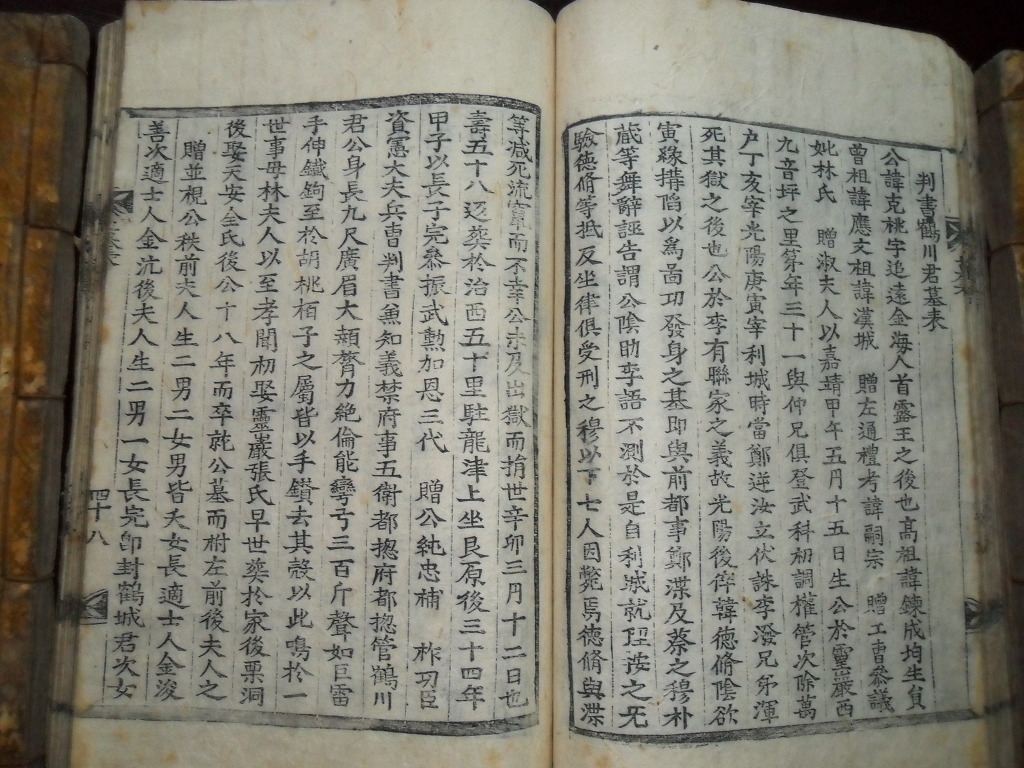 判書鶴川君墓表
公諱克桃字追遠金海人首露王之後也高祖諱鍊成均生員
曾祖諱應文祖諱漢城 贈左通禮考諱嗣宗 贈工曹叅議
妣林氏 贈淑夫人以嘉靖甲午五月十五日生公於靈巖西
九音坪之里第年三十一與仲兄俱登武科初調權管次除萬
戶丁亥宰光陽庚寅宰利城時當鄭逆汝立伏誅李潑兄弟渾
死其獄之後也公於李有聯家之義故光陽後倅韓德脩陰欲
寅緣搆陷以爲啚功發身之基卽與前都事鄭渫及蔡之穆朴
蕆等舞辭誣告謂公陰助李語不測於是自利城就逕按之旡
驗德脩等抵反坐律俱受刑之穆以下七人因斃焉德脩與渫
等减死流竄而不幸公未及出獄而捐世辛卯三月十二日也
壽五十八返葬於治西五十里駐龍津上坐艮原後三十四年
甲子以長子完叅振武勳加恩三代 贈公純忠補 柞功臣
資憲大夫兵曹判書兼知義禁府事五衛都摠府都摠管鶴川
君公身長九尺廣眉大顙膂力絶倫能彎弓三百斤聲如巨雷
手伸鐵鉤至於胡桃栢子之屬皆以手鑽去其殼以此鳴於一
世事母林夫人以至孝聞初娶靈巖張氏早世葬於家後栗洞
後娶天安全氏後公十八年而卒就公墓而祔左前後夫人之
贈並視公秩前夫人生二男二女男皆夭女長適士人金浚
善次適士人金沆後夫人生二男一女長完卽封鶴城君次女
四十八